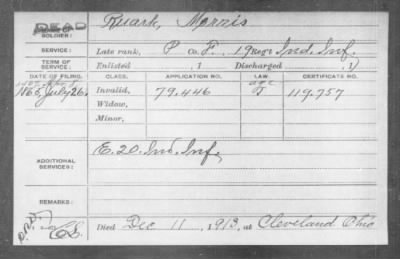 DEAD
SOLDIER: Ruark, Morris
SERVICE: Late rank, P Co. F, 19 Reg't Ind. Inf.
TERM OF SERVICE: Enlisted , 1 Discharged , 1
DATE OF FILING. CLASS. APPLICATION NO. LAW. CERTIFICATE NO.
1865, July 26. Invalid, 79.446 119.757
Widow,
Minor,
ADDITIONAL SERVICES: E. 20. Ind. Inf.
REMARKS:
Died Dec 11, 1913, at Cleveland Ohio